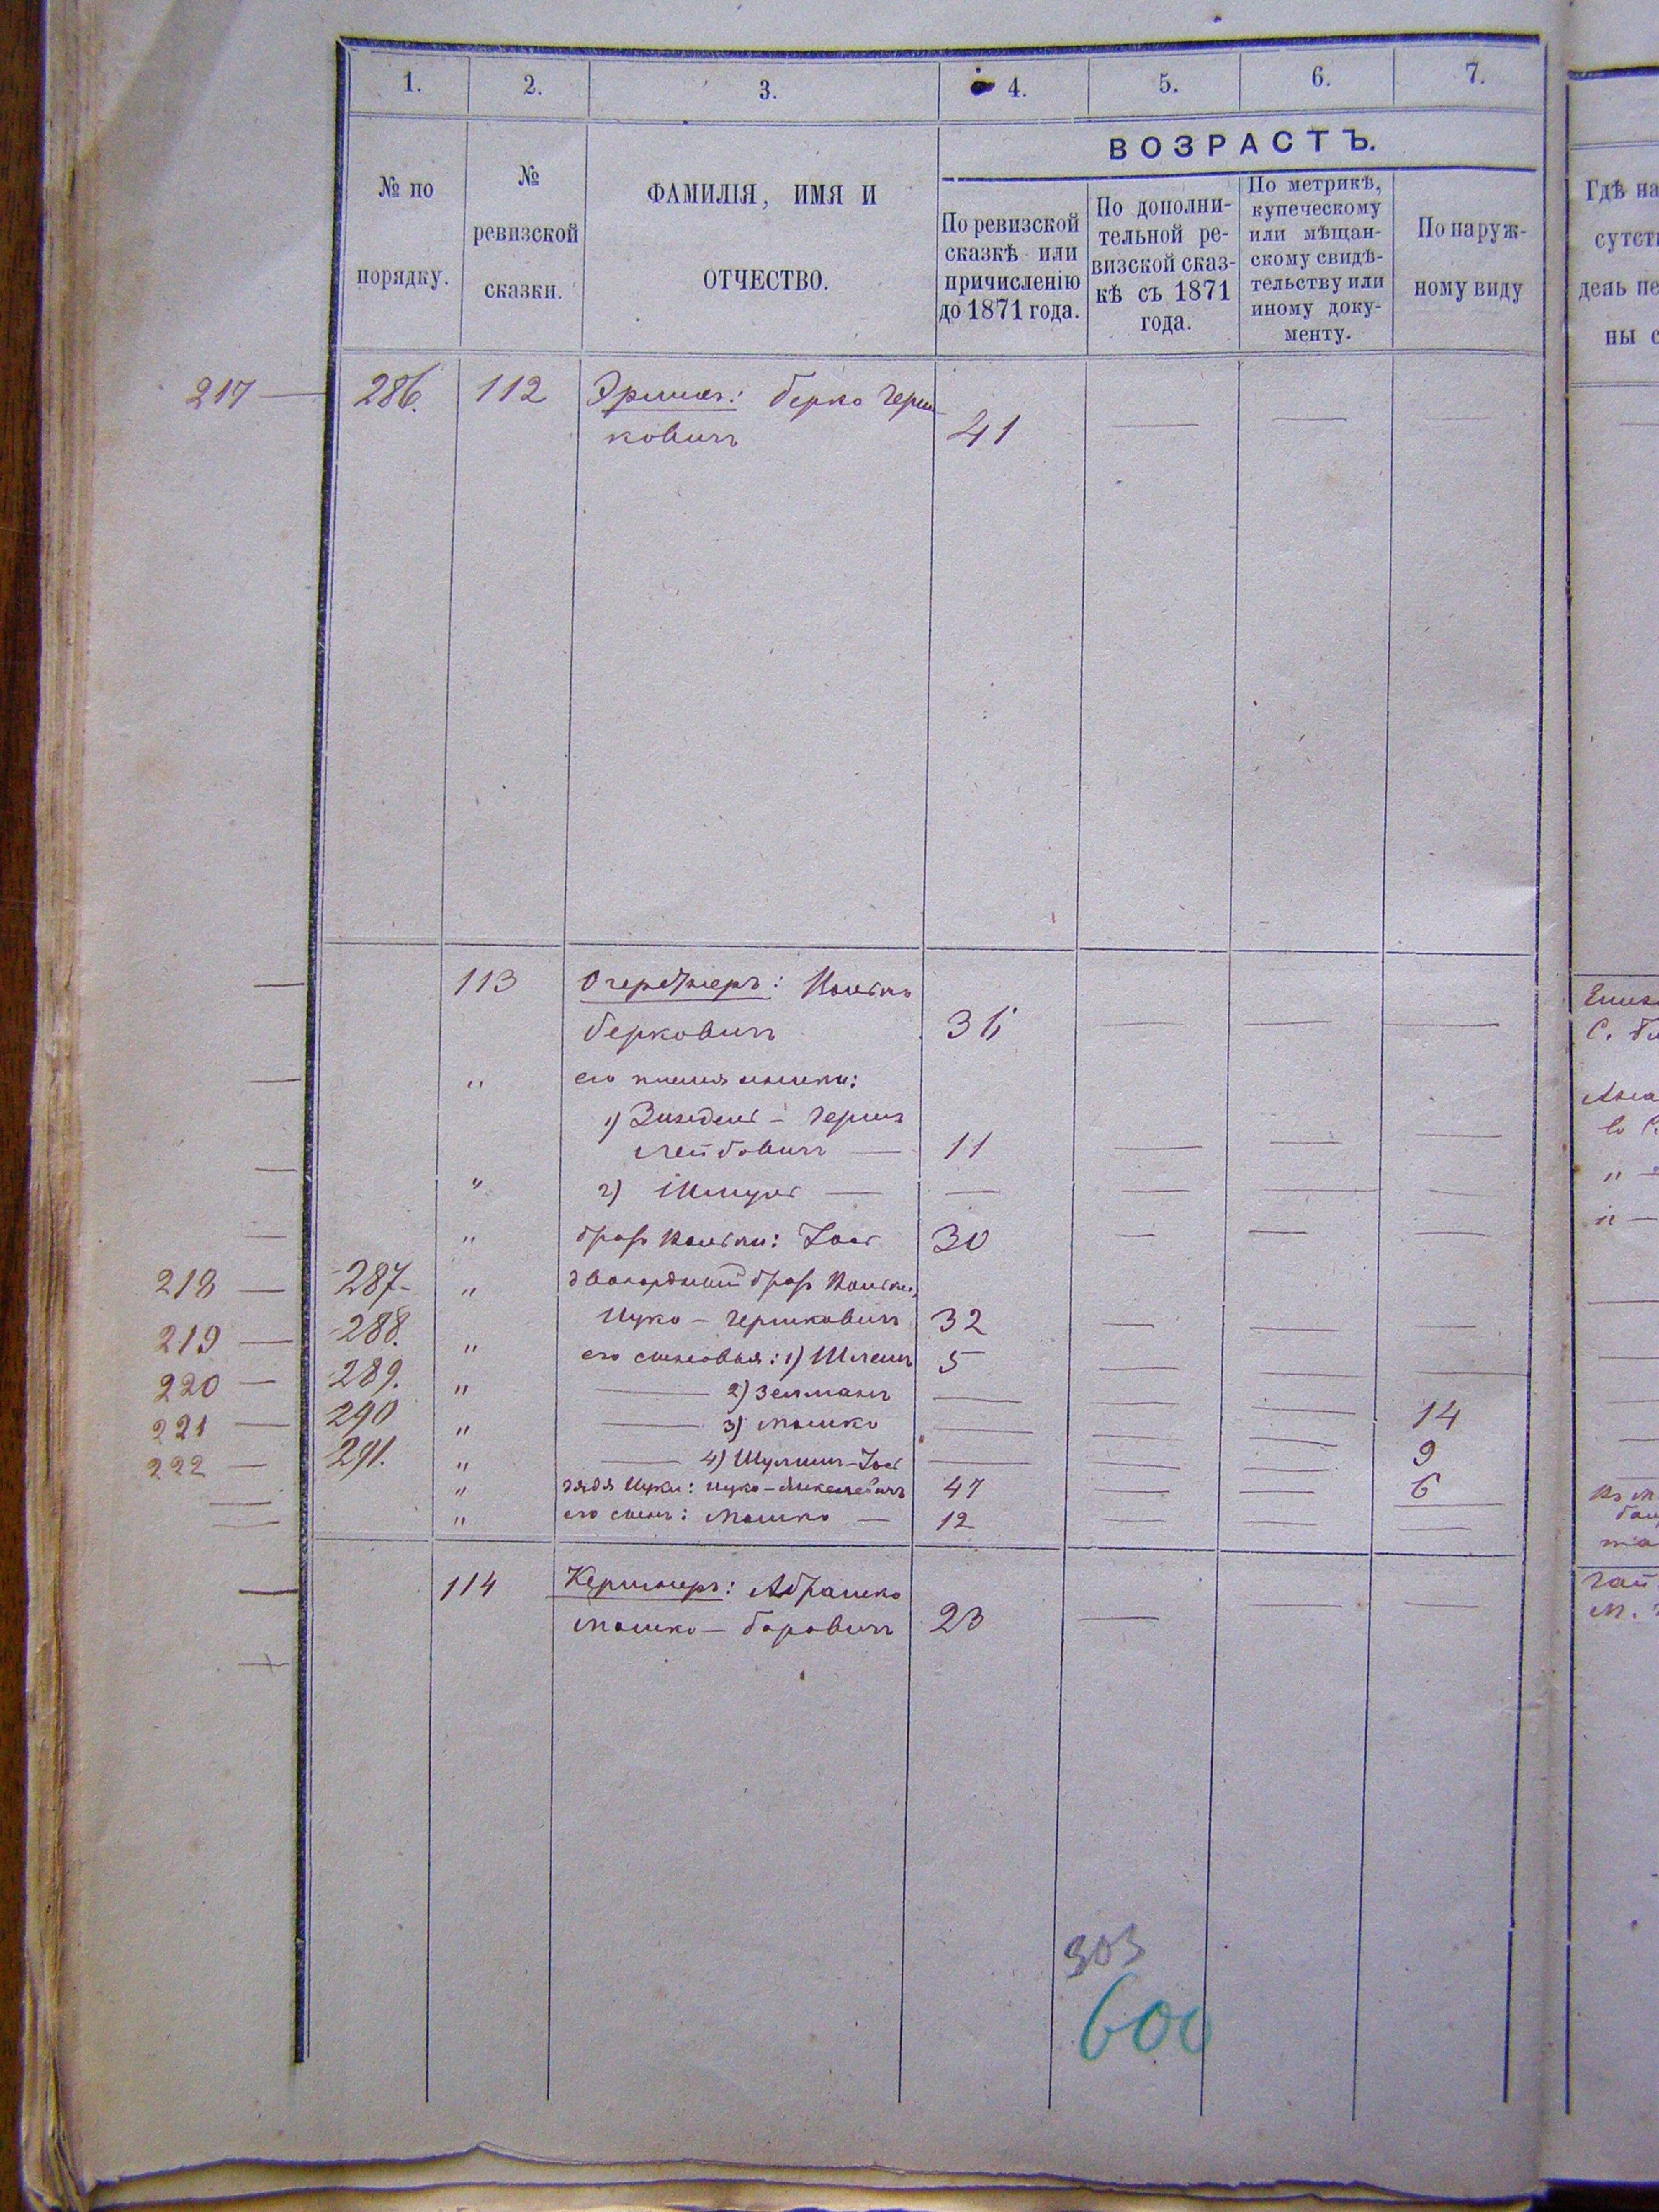 1. 2. 3. 4. 5. 6. 7.
№ по порядку.
№ ревизской сказки.
ФАМИЛІЯ, ИМЯ И ОТЧЕСТВО.
ВОЗРАСТЪ.
По ревизской сказкѣ или причисленію до 1871 года.
По дополнительной ревизской сказкѣ съ 1871 года.
По метрикѣ, купеческому или мѣщанскому свидѣтельству или иному документу.
По наружному виду
Гдѣ на
сутст
день пе
ны с
217 — 286. 112 Берко Герш
ковичъ 41 — — —
113
Берковичъ 36 — — —
" его племянники:
1) Зинделъ - Герш
Лейбовичъ — 11 — — —
" 2) Шмуль — — — — —
" братъ : Іось 30 — — —
218 — 287- " двоюродный братъ
Ицко - Гершковичъ 32 — — —
219 — 288. " его сыновья: 1) Шлема 5 — — —
220 — 289. " — 2) Зельманъ — — — —
221 — 290 " — 3) Мошко — — — 14
222 — 291. " — 4) -Іось — — — 9
" дядя Ицки: Ицко - 47 — — 6
" его сынъ: Мошко — 12 — — —
114 Кершнеръ: Абрамко
Мошко - Боровичъ 23 — — —
303
600